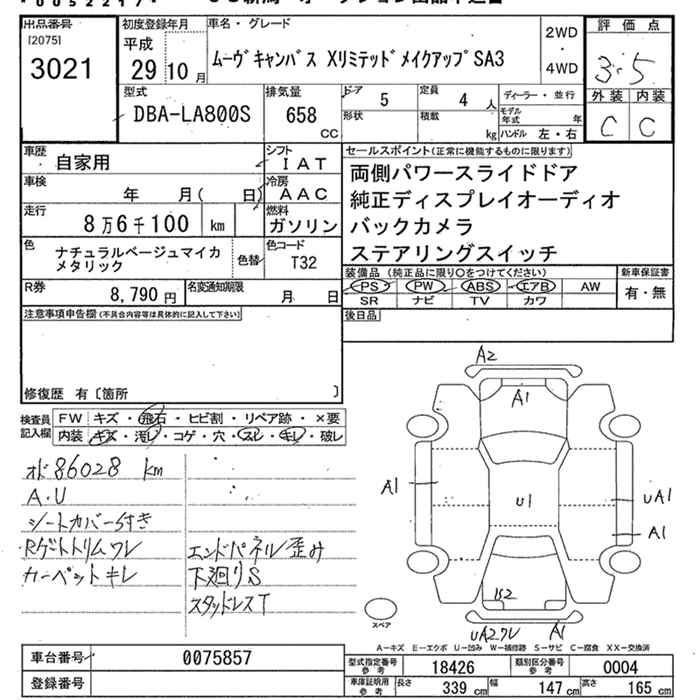 出品番号
[2075]
3021
初度登録年月
平成
29 10 月
車名・グレード
ムーヴキャンバス Xリミテッドメイクアップ SA3
2WD
・
4WD
評価点
3.5
外装 内装
C C
型式
DBA-LA800S
排気量
658
CC
ドア
5
定員
4 人
ディーラー・並行
形状
積載
kg
モデル年式
年
ハンドル 左・右
車歴
自家用
シフト
IAT
車検
年 月( 日)
冷房
AAC
走行
8万6千100 km
燃料
ガソリン
色
ナチュラルベージュマイカ
メタリック
色替
色コード
T32
R券
8,790 円
名変通知期限
月 日
セールスポイント(正常に機能するものに限ります)
両側パワースライドドア
純正ディスプレイオーディオ
バックカメラ
ステアリングスイッチ
装備品 (純正品に限り○をつけてください)
PS PW ABS エアB AW
SR ナビ TV カワ
新車保証書
有・無
後日品
注意事項申告欄 (不具合内容等は具体的に記入して下さい)
修復歴 有〔箇所 〕
検査員
記入欄
FW キズ・飛石・ヒビ割・リペア跡・×要
内装 キズ・汚レ・コゲ・穴・スレ・キレ・破レ
オド 86028 km
A.U
シートカバーS付き
Rゲートトリムワレ
カーペットキレ
エンドパネル歪み
下廻りS
スタッドレスT
A2
A1
A1
U1
UA1
A1
UA2ワレ
A1
スペア
A-キズ E-エクボ U-凹み W-補修跡 S-サビ C-腐食 XX-交換済
車台番号
0075857
登録番号
型式指定番号
参考
18426
類別区分番号
参考
0004
車庫証明用
参考
長さ
339 cm
幅
147 cm
高さ
165 cm